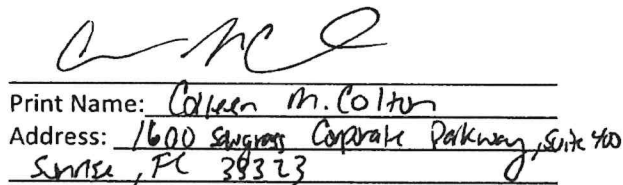 Print Name: Colleen M. Colton
Address: 1600 Sawgrass Corporate Parkway, Suite 400
Sunrise, FL 33323